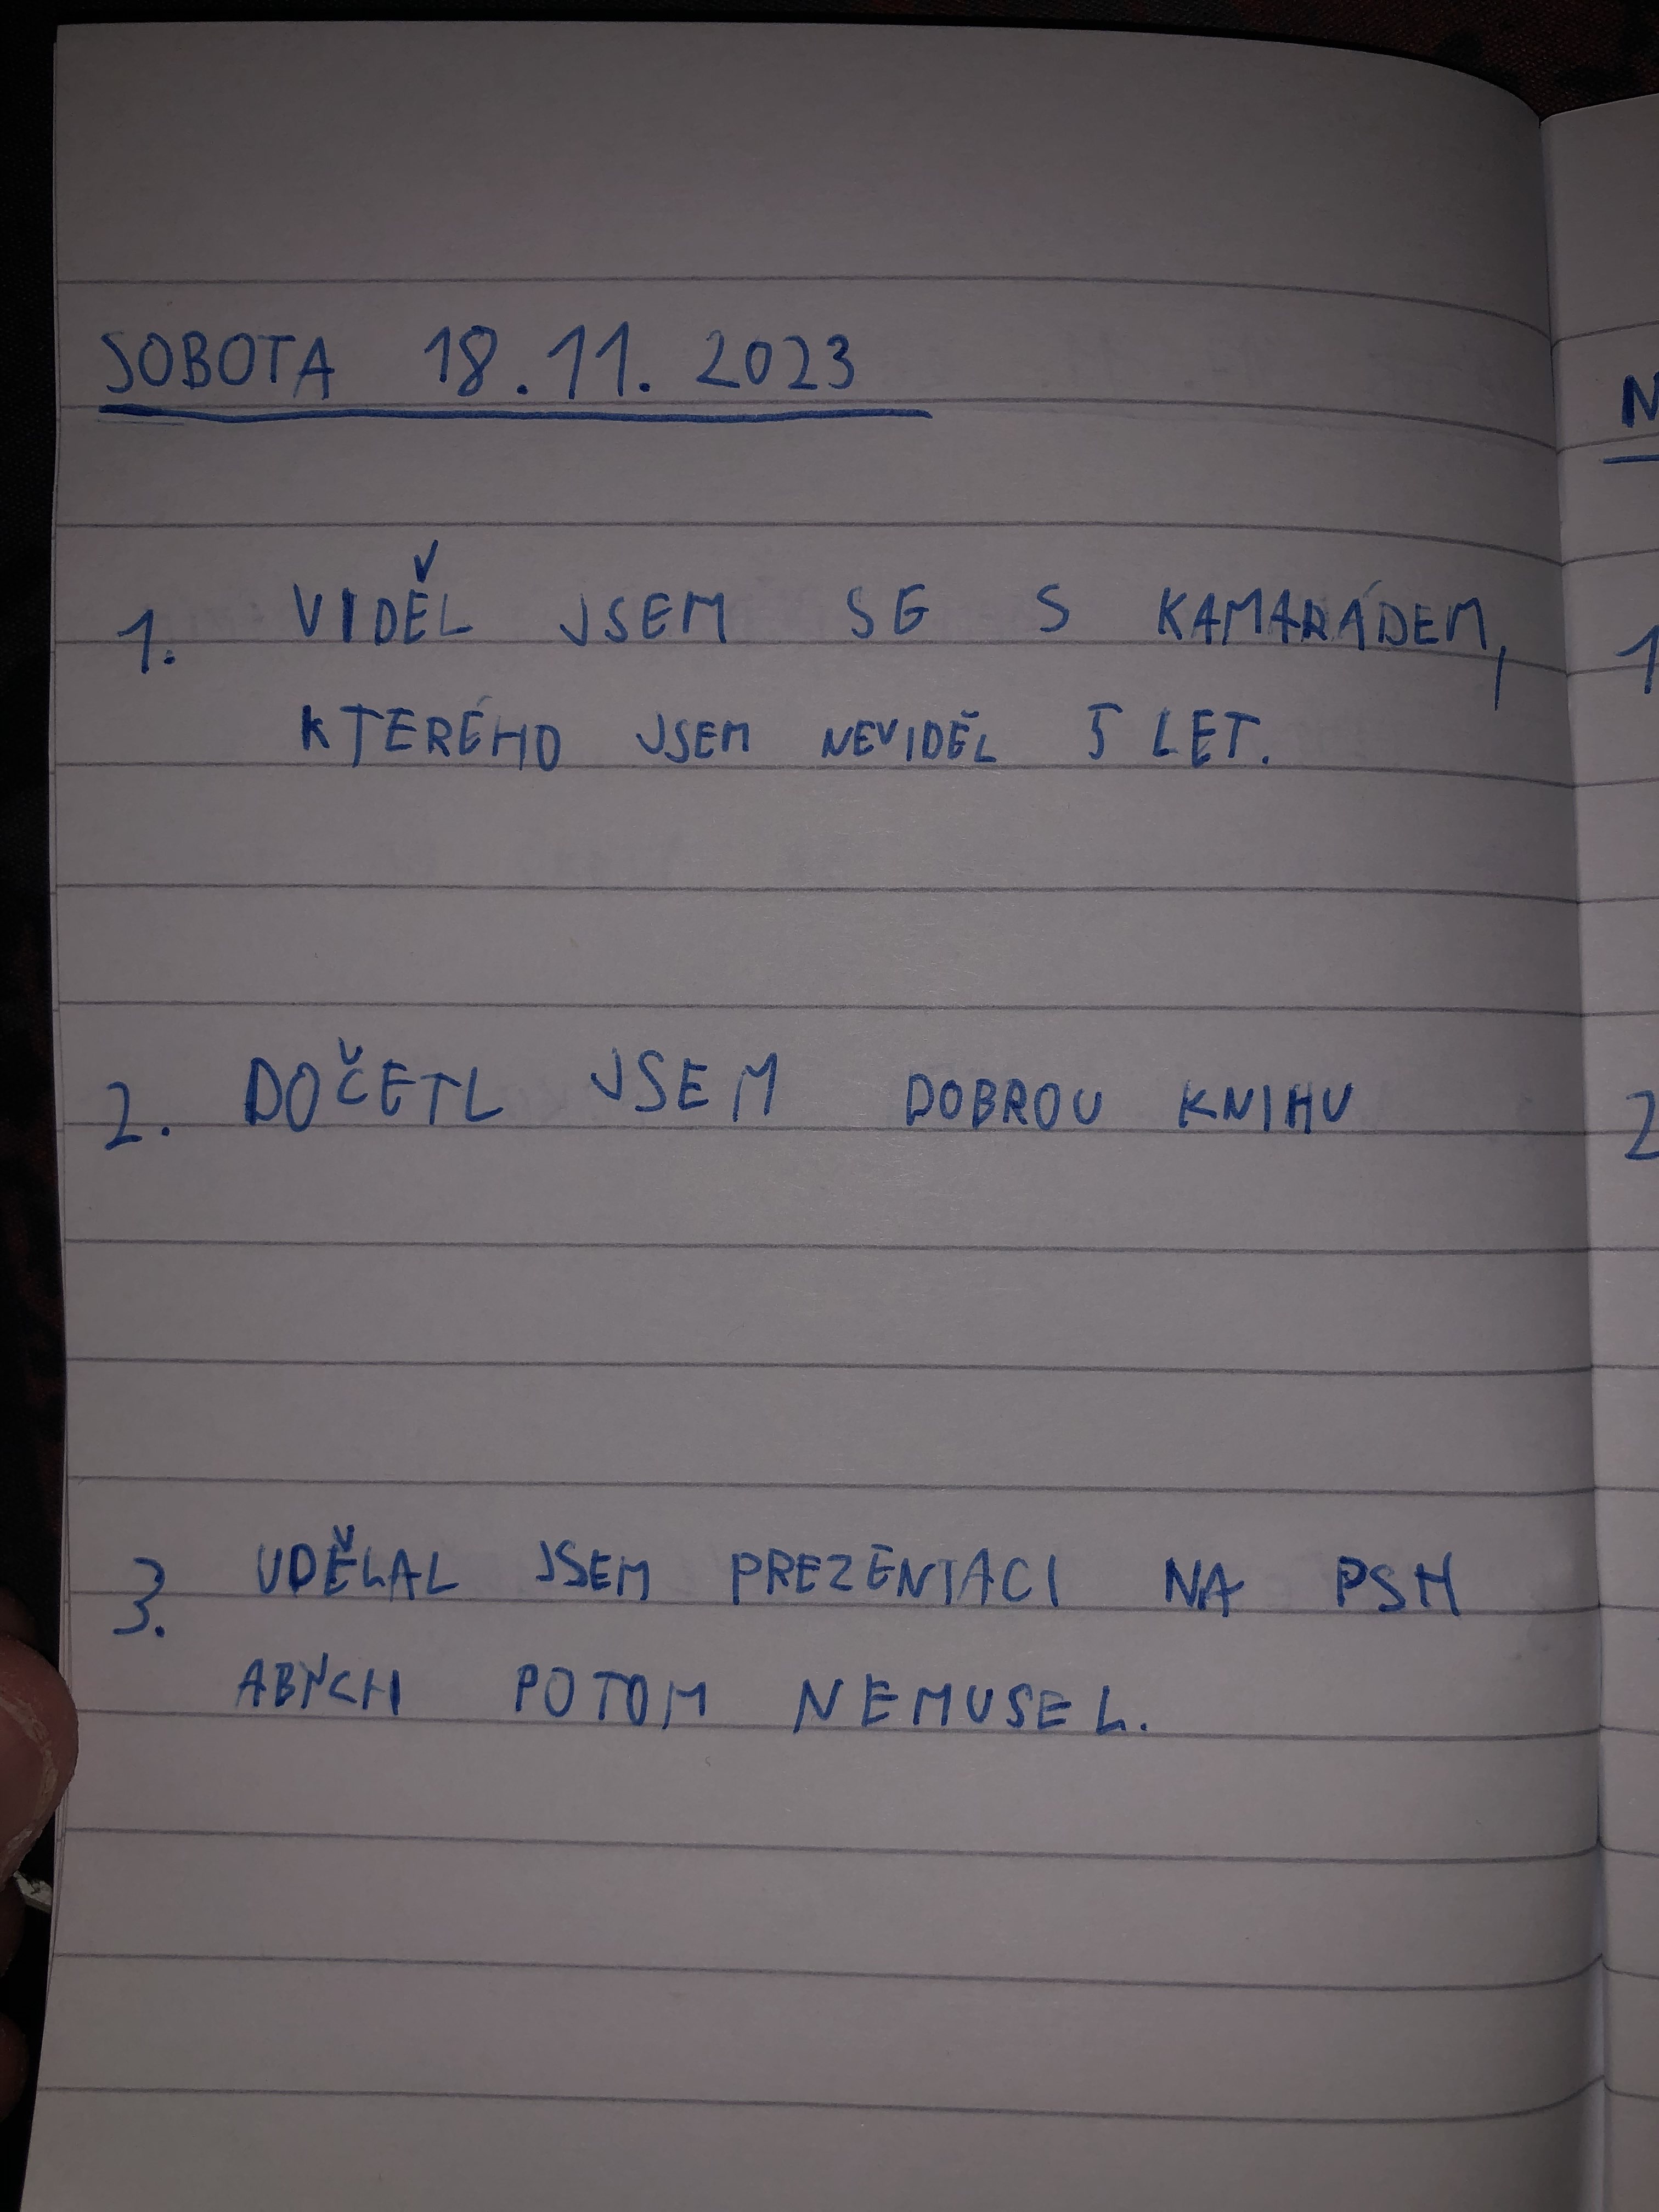 SOBOTA 18.11.2023
1. VIDĚL JSEM SE S KAMARÁDEM,
KTERÉHO JSEM NEVIDĚL 5 LET.
2. DOČETL JSEM DOBROU KNIHU
3. UDĚLAL JSEM PREZENTACI NA PSM
ABYCH POTOM NEMUSEL.
N
1
2